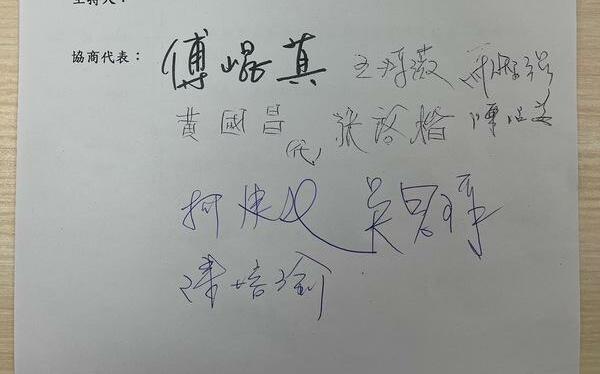 主持人：
協商代表： 傅崐萁 王鴻薇
黃國昌 (代) 張啓楷
柯建 吳思瑤
陳培瑜